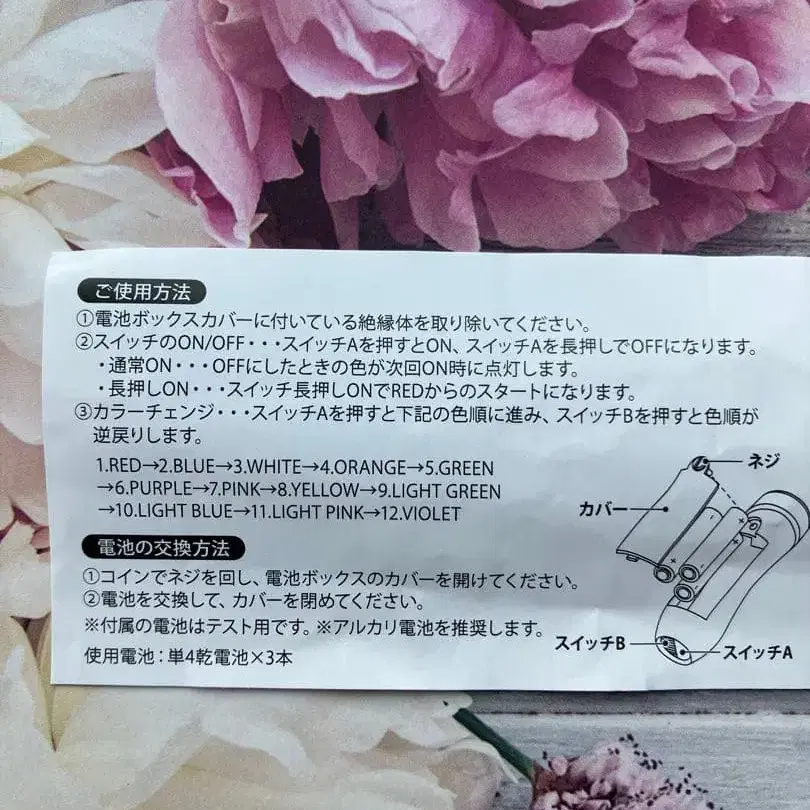 ご使用方法
①電池ボックスカバーに付いている絶縁体を取り除いてください。
②スイッチのON/OFF・・・スイッチAを押すとON、スイッチAを長押しでOFFになります。
・通常ON・・・OFFにしたときの色が次回ON時に点灯します。
・長押しON・・・スイッチ長押しONでREDからのスタートになります。
③カラーチェンジ・・・スイッチAを押すと下記の色順に進み、スイッチBを押すと色順が
逆戻りします。
1.RED→2.BLUE→3.WHITE→4.ORANGE→5.GREEN
→6.PURPLE→7.PINK→8.YELLOW→9.LIGHT GREEN
→10.LIGHT BLUE→11.LIGHT PINK→12.VIOLET
ネジ
カバー
電池の交換方法
①コインでネジを回し、電池ボックスのカバーを開けてください。
②電池を交換して、カバーを閉めてください。
※付属の電池はテスト用です。※アルカリ電池を推奨します。
使用電池：単4乾電池×3本
スイッチB
スイッチA